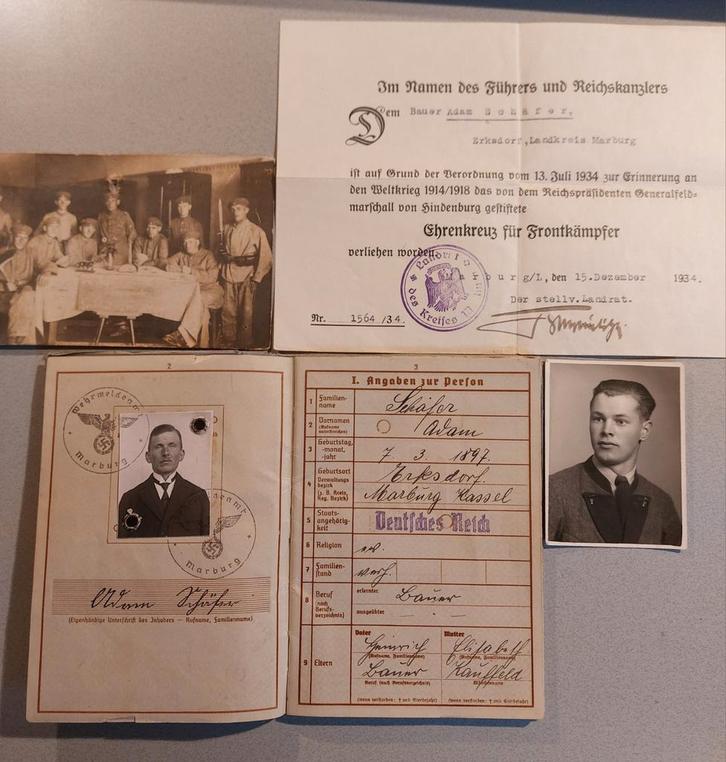 Im Namen des Führers und Reichskanzlers
Dem Bauer Adam Schäfer,
Erksdorf, Landkreis Marburg
ist auf Grund der Verordnung vom 13. Juli 1934 zur Erinnerung an
den Weltkrieg 1914/1918 das von dem Reichspräsidenten Generalfeld-
marschall von Hindenburg gestiftete
Ehrenkreuz für Frontkämpfer
verliehen worden.
burg/L, den 15. Dezember 1934.
Der stellv. Landrat.
Nr. 1564 /34.
Landrat
des Kreises
2
Wehrmeldeamt
Marburg
Marburg
Adam Schäfer
(Eigenhändige Unterschrift des Inhabers — Rufname, Familienname)
3
I. Angaben zur Person
1 Familien-
name
Schäfer
2 Vornamen
(Rufname
unterstreichen)
Adam
3 Geburtstag,
-monat,
-jahr
7. 3. 1897.
4 Geburtsort
Verwaltungs-
bezirk
(z. B. Kreis,
Reg. Bezirk)
Erksdorf.
Marburg Kassel
5 Staats-
angehörig-
keit
Deutsches Reich
6 Religion
ev.
7 Familien-
stand
verh.
8 Beruf
(nach
Berufs-
verzeichnis)
erlernter
Bauer
ausgeübter
9 Eltern
Vater
Heinrich
(Rufname, Familienname)
Bauer
Beruf (nach Berufsverzeichnis)
(wenn verstorben: † und Sterbejahr)
Mutter
Elisabeth
(Rufname, Familienname)
Kauffeld
Mädchenname
(wenn verstorben: † und Sterbejahr)